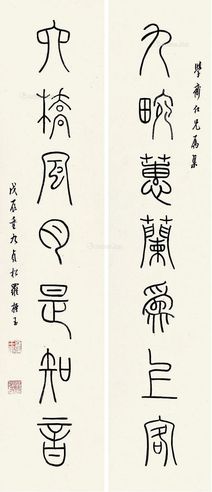 學齋仁兄屬集
九畹蕙蘭為上客
六橋風月是知音
戊辰重九貞松羅振玉